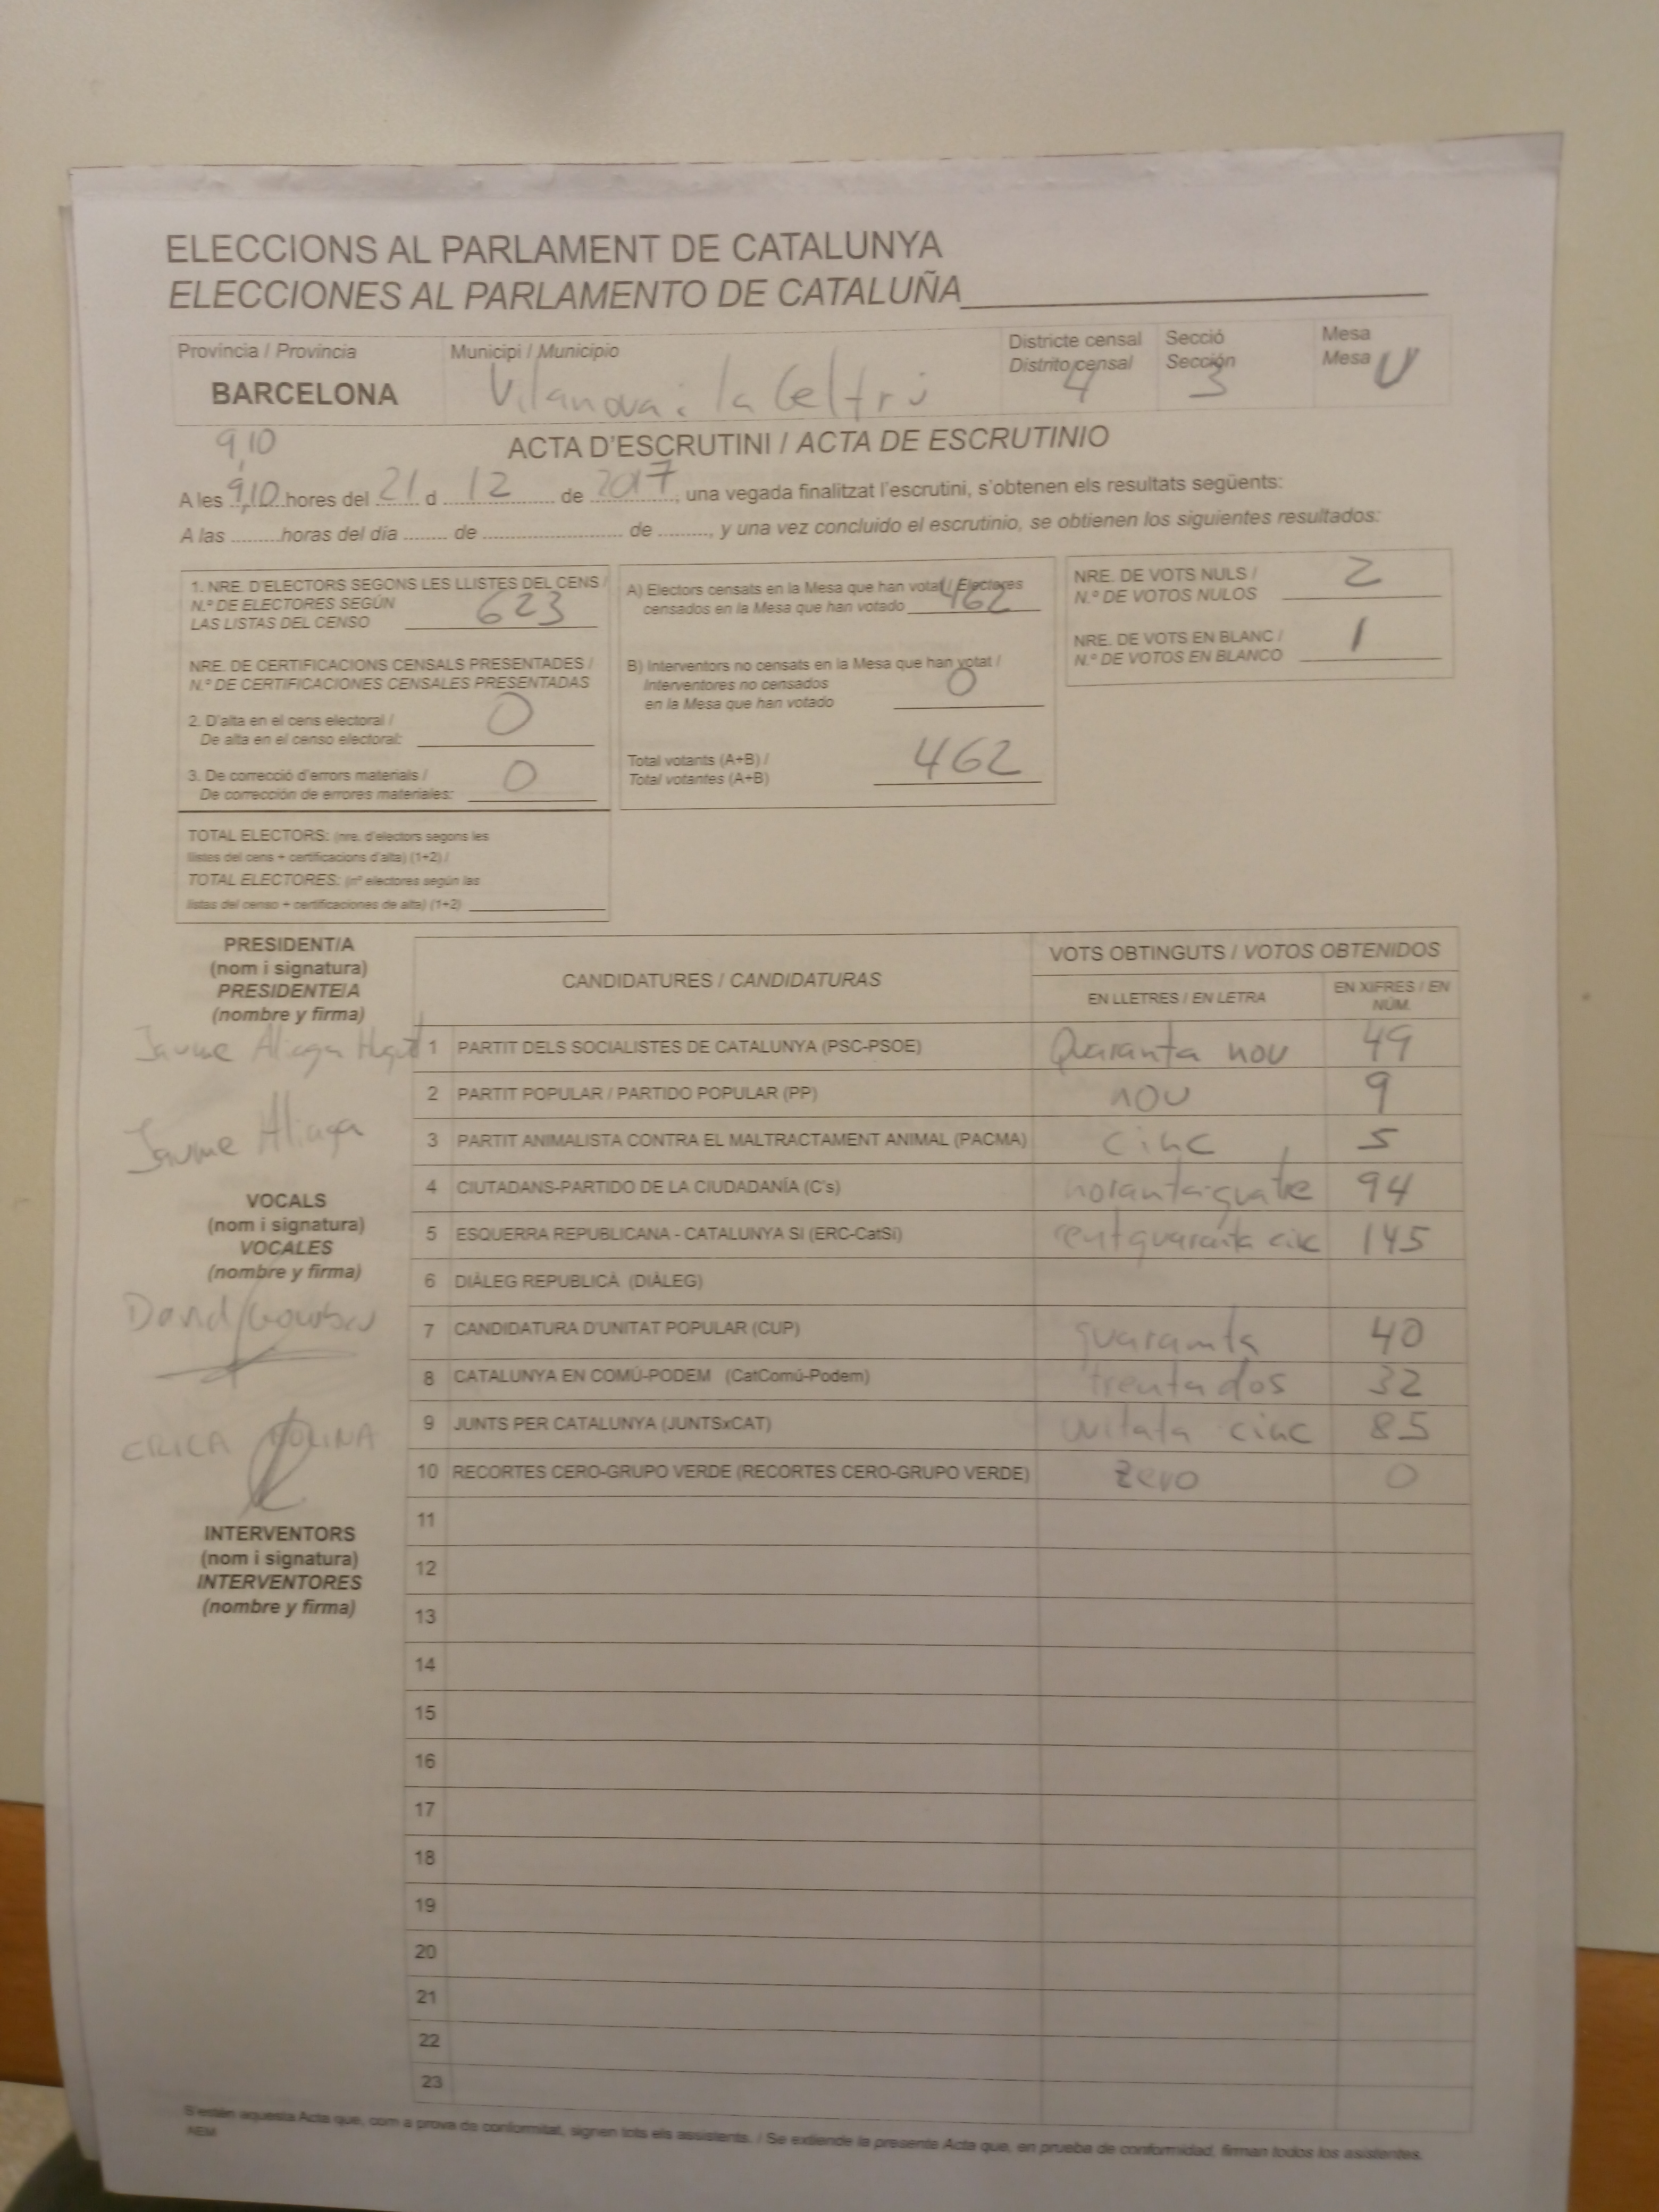 ELECCIONS AL PARLAMENT DE CATALUNYA
ELECCIONES AL PARLAMENTO DE CATALUÑA
Provincia / Provincia
BARCELONA
Municipi / Municipio
Vilanova i la Geltrú
Districte censal
Distrito censal
4
Secció
Sección
3
Mesa
Mesa U
9,10
ACTA D'ESCRUTINI / ACTA DE ESCRUTINIO
A les 9,10 hores del 21 d 12 de 2017, una vegada finalitzat l'escrutini, s'obtenen els resultats següents:
A las .........horas del día ........ de .......................... de ........., y una vez concluido el escrutinio, se obtienen los siguientes resultados:
1. NRE. D'ELECTORS SEGONS LES LLISTES DEL CENS /
N.º DE ELECTORES SEGÚN
LAS LISTAS DEL CENSO 623
NRE. DE CERTIFICACIONS CENSALS PRESENTADES /
N.º DE CERTIFICACIONES CENSALES PRESENTADAS
2. D'alta en el cens electoral /
De alta en el censo electoral: 0
3. De correcció d'errors materials /
De corrección de errores materiales: 0
TOTAL ELECTORS: (nre. d'electors segons les
llistes del cens + certificacions d'alta) (1+2) /
TOTAL ELECTORES: (nº electores según las
listas del censo + certificaciones de alta) (1+2)
A) Electors censats en la Mesa que han votat / Electores
censados en la Mesa que han votado 462
B) Interventors no censats en la Mesa que han votat /
Interventores no censados
en la Mesa que han votado 0
Total votants (A+B) /
Total votantes (A+B) 462
NRE. DE VOTS NULS /
N.º DE VOTOS NULOS 2
NRE. DE VOTS EN BLANC /
N.º DE VOTOS EN BLANCO 1
PRESIDENT/A
(nom i signatura)
PRESIDENTE/A
(nombre y firma)
Jaume Aliaga
Jaume Aliaga
VOCALS
(nom i signatura)
VOCALES
(nombre y firma)
David
ERICA MOLINA
INTERVENTORS
(nom i signatura)
INTERVENTORES
(nombre y firma)
CANDIDATURES / CANDIDATURAS
VOTS OBTINGUTS / VOTOS OBTENIDOS
EN LLETRES / EN LETRA
EN XIFRES / EN
NÚM.
1 PARTIT DELS SOCIALISTES DE CATALUNYA (PSC-PSOE) Quaranta nou 49
2 PARTIT POPULAR / PARTIDO POPULAR (PP) nou 9
3 PARTIT ANIMALISTA CONTRA EL MALTRACTAMENT ANIMAL (PACMA) cinc 5
4 CIUTADANS-PARTIDO DE LA CIUDADANÍA (C's) norantaiquatre 94
5 ESQUERRA REPUBLICANA - CATALUNYA SI (ERC-CatSí) cent quaranta cinc 145
6 DIÀLEG REPUBLICÀ (DIÀLEG)
7 CANDIDATURA D'UNITAT POPULAR (CUP) quaranta 40
8 CATALUNYA EN COMÚ-PODEM (CatComú-Podem) trenta dos 32
9 JUNTS PER CATALUNYA (JUNTSxCAT) vuitata cinc 85
10 RECORTES CERO-GRUPO VERDE (RECORTES CERO-GRUPO VERDE) Zero 0
11
12
13
14
15
16
17
18
19
20
21
22
23
S'estén aquesta Acta que, com a prova de conformitat, signen tots els assistents. / Se extiende la presente Acta que, en prueba de conformidad, firman todos los asistentes.